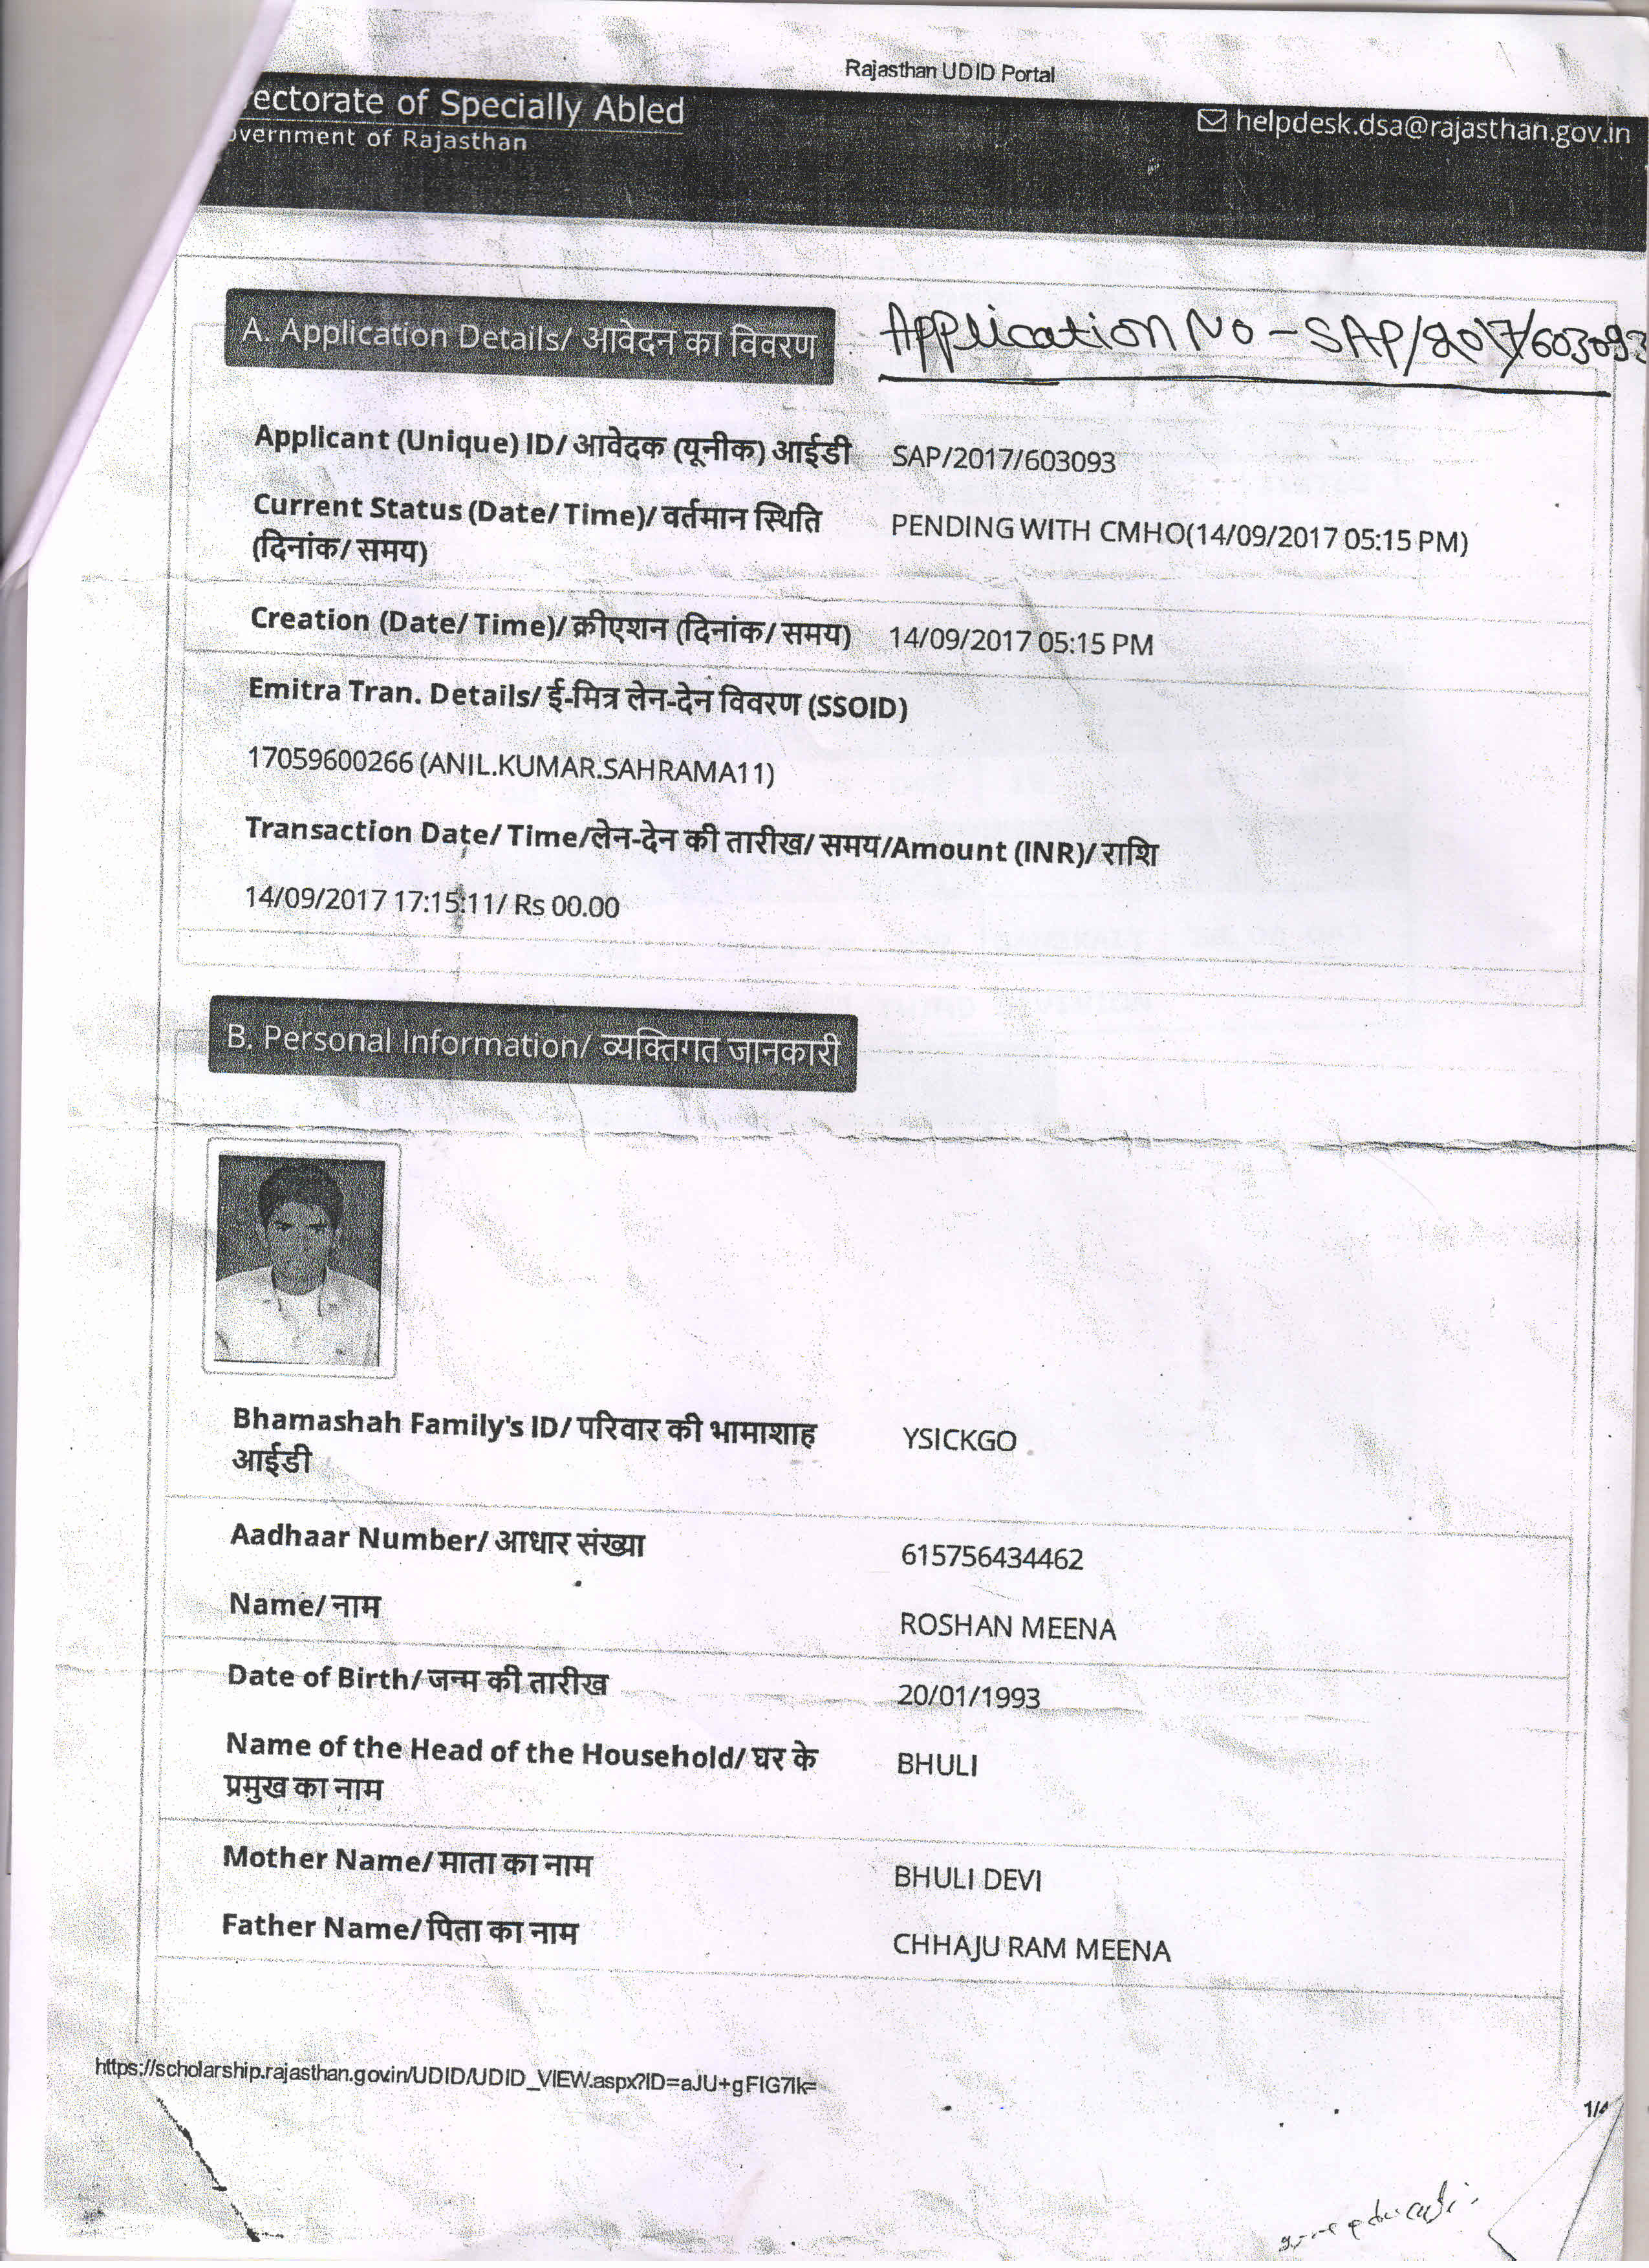 Rajasthan UDID Portal
ectorate of Specially Abled
overnment of Rajasthan
helpdesk.dsa@rajasthan.gov.in
A. Application Details/ आवेदन का विवरण
Application No - SAP/2017/603093
Applicant (Unique) ID/ आवेदक (यूनीक) आईडी SAP/2017/603093
Current Status (Date/ Time)/ वर्तमान स्थिति PENDING WITH CMHO(14/09/2017 05:15 PM)
(दिनांक/ समय)
Creation (Date/ Time)/ क्रीएशन (दिनांक/ समय) 14/09/2017 05:15 PM
Emitra Tran. Details/ ई-मित्र लेन-देन विवरण (SSOID)
17059600266 (ANIL.KUMAR.SAHRAMA11)
Transaction Date/ Time/लेन-देन की तारीख/ समय/Amount (INR)/ राशि
14/09/2017 17:15:11/ Rs 00.00
B. Personal Information/ व्यक्तिगत जानकारी
Bhamashah Family's ID/ परिवार की भामाशाह YSICKGO
आईडी
Aadhaar Number/ आधार संख्या 615756434462
Name/ नाम ROSHAN MEENA
Date of Birth/ जन्म की तारीख 20/01/1993
Name of the Head of the Household/ घर के BHULI
प्रमुख का नाम
Mother Name/ माता का नाम BHULI DEVI
Father Name/ पिता का नाम CHHAJU RAM MEENA
https://scholarship.rajasthan.gov.in/UDID/UDID_VIEW.aspx?ID=aJU+gFIG7Ik=
1/4